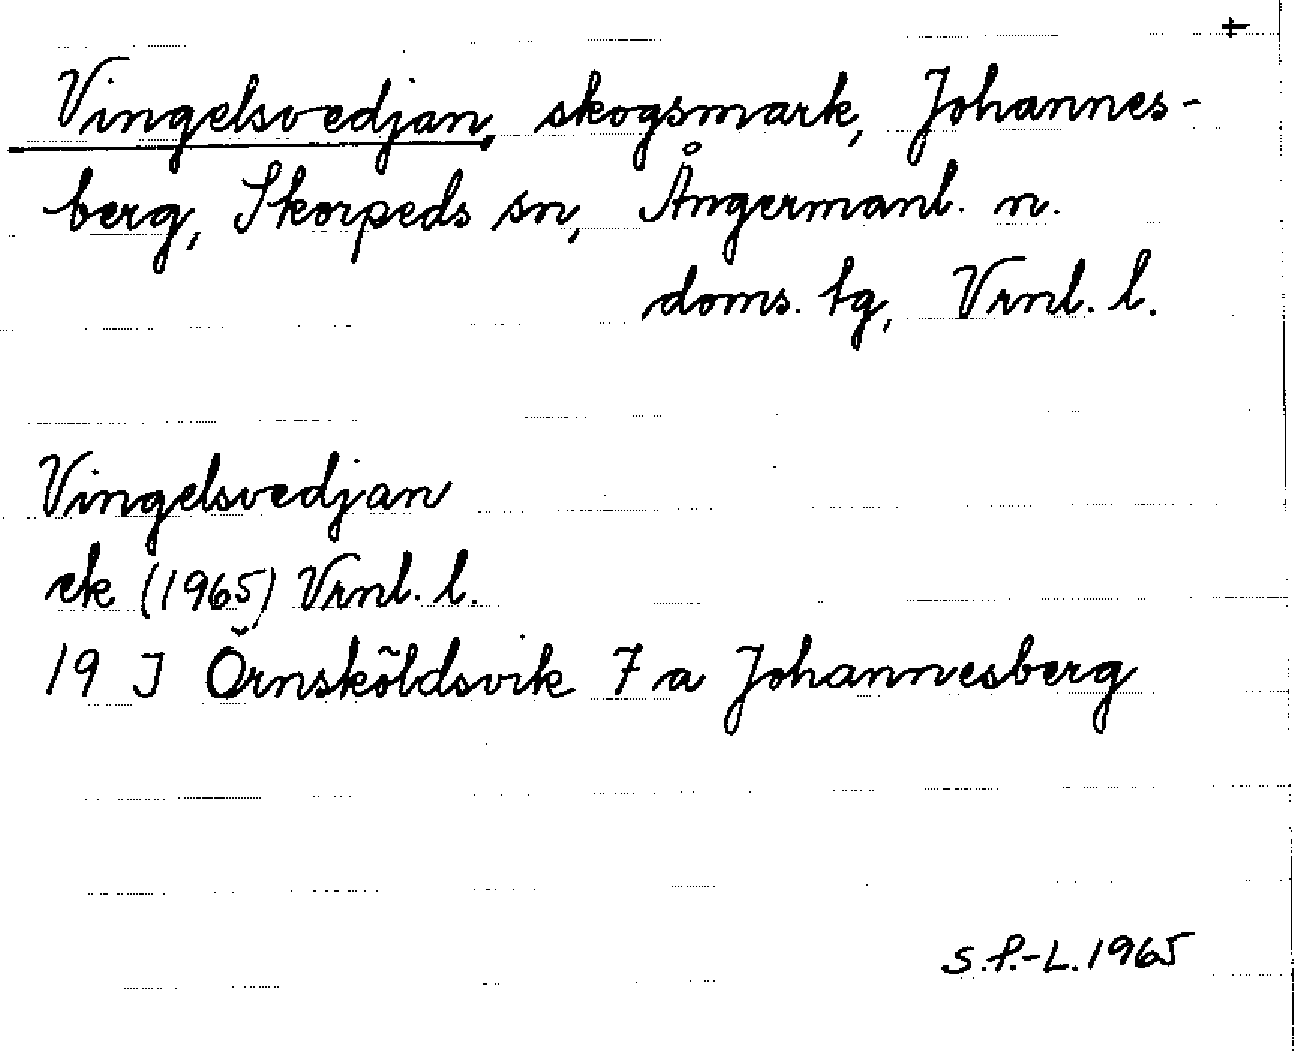 +
Vingelsvedjan, skogsmark, Johannes-
berg, Skorpeds sn, Ångermanl. n.
doms. tg, Vrnl. l.
Vingelsvedjan
ek (1965) Vrnl. l.
19 J Örnsköldsvik 7 a Johannesberg
S.P.-L. 1965